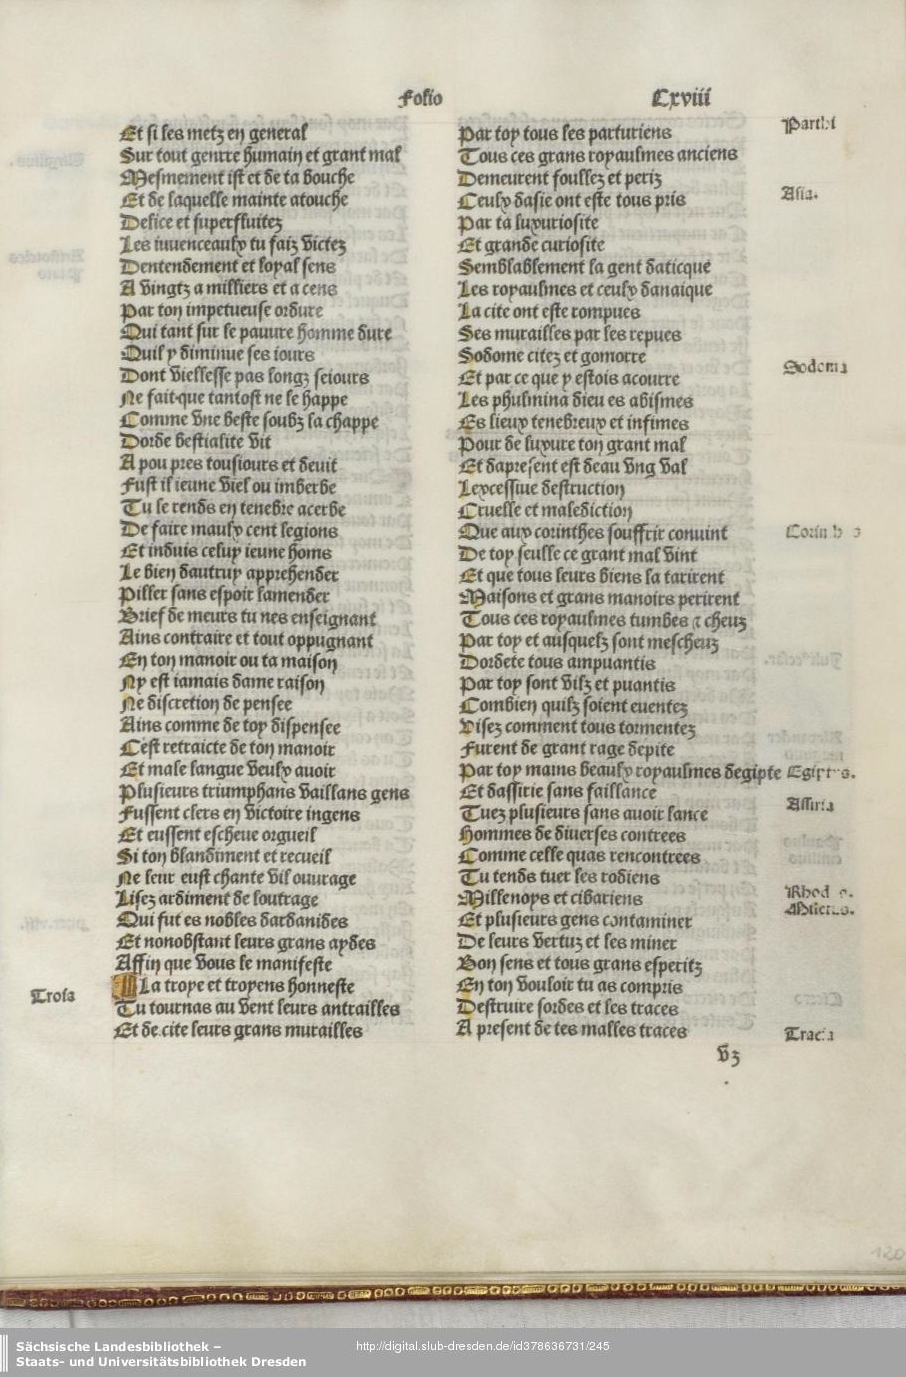 Folio
Cxviii
Et si les metz en general
Sur tout genrre humain et grant mal
Mesmement ist et de ta bouche
Et de laquelle mainte atouche
Delice et superfluitez
Les iuuenceaulx tu faiz victez
Dentendement et loyal sens
A vingtz a milliers et a cens
Par ton impetueuse ordure
Qui tant sur le pauure homme dure
Quil y diminue ses iours
Dont viellesse pas longz seiours
Ne fait que tantost ne le happe
Comme vne beste soubz la chappe
Dorde bestialite vit
A pou pres tousiours et deuit
Fust il ieune viel ou imberbe
Tu le rends en tenebre acerbe
De faire maulx cent legions
Et induis celuy ieune homs
Le bien dautruy apprehender
Piller sans espoir lamender
Brief de meurs tu nes enseignant
Ains contraire et tout oppugnant
En ton manoir ou ta maison
Ny est iamais dame raison
Ne discretion de pensee
Ains comme de toy dispensee
Cest retraicte de ton manoir
Et male langue veulx auoir
Plusieurs triumphans vaillans gens
Fussent clers en victoire ingens
Et eussent escheue orgueil
Si ton blandiment et recueil
Ne leur eust chante vil ouurage
Lisez ardiment de loutrage
Qui fut es nobles dardanides
Et nonobstant leurs grans aydes
Affin que vous le manifeste
Troia
A La troye et troyens honneste
Tu tournas au vent leurs antrailles
Et de cite leurs grans murailles
Par toy tous les parturiens
Parthi
Tous ces grans royaulmes anciens
Demeurent foullez et periz
Ceulx dasie ont este tous pris
Asia.
Par ta luxuriosite
Et grande curiosite
Semblablement la gent daticque
Les royaulmes et ceulx danaique
La cite ont este rompues
Ses murailles par les repues
Sodome citez et gomorre
Sodoma
Et par ce que y estois acourre
Les phulmina dieu es abismes
Es lieux tenebreux et infimes
Pour de luxure ton grant mal
Et dapresent est deau vng val
Lexcessiue destruction
Cruelle et malediction
Que aux corinthes souffrir conuint
De toy seulle ce grant mal vint
Et que tous leurs biens la tarirent
Maisons et grans manoirs perirent
Tous ces royaulmes tumbes ⁊ cheuz
Par toy et ausquelz sont mescheuz
Dordete tous ampuantis
Par toy sont vilz et puantis
Combien quilz soient euentez
Visez comment tous tormentez
Furent de grant rage depite
Par toy mains beaulx royaulmes degipte
Et dassirie sans faillance
Assiria
Tuez plusieurs sans auoir lance
Hommes de diuerses contrees
Comme celle quas rencontrees
Tu tends tuer les rodiens
Millenoys et cibariens
Et plusieurs gens contaminer
De leurs vertuz et les miner
Bon sens et tous grans esperitz
En ton vouloir tu as compris
Destruire sordes et les traces
A present de tes malles traces
Tracia
vz
120
Sächsische Landesbibliothek –
Staats- und Universitätsbibliothek Dresden
http://digital.slub-dresden.de/id378636731/245